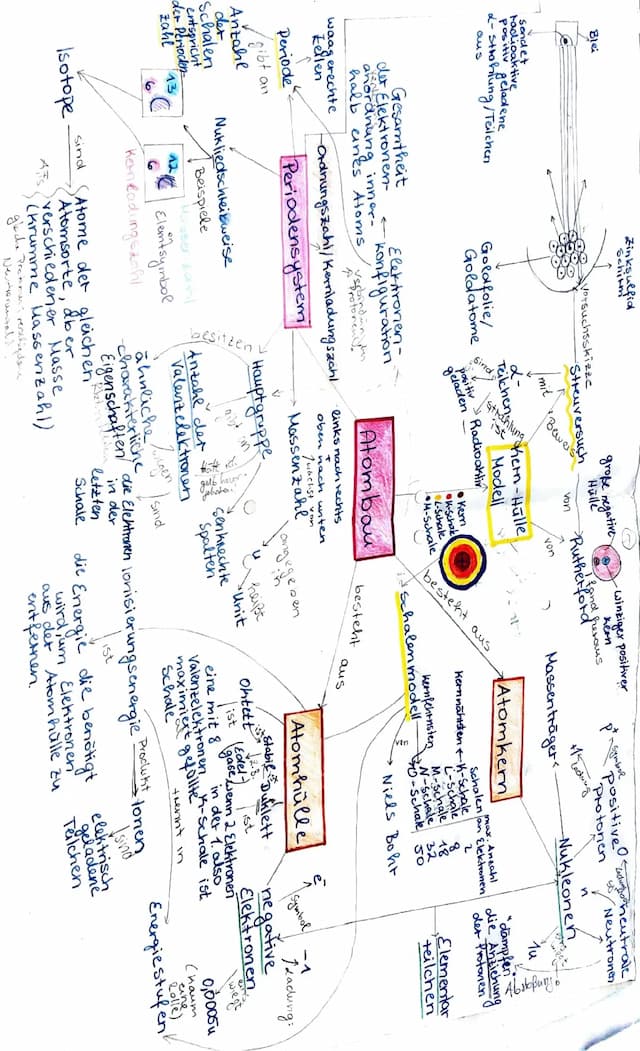 Blei
sendet
radioaktive
positiv geladene
α-strahlung/Teilchen
aus
Zinksulfid
Schirm
Versuchsskizze
Goldfolie/
Goldatome
Streuversuch
mit
α-
Teilchen
sind
positiv
geladen
Strahlung
ist
Radioaktiv
Beweis
von
Kern-Hülle
Modell
von
Ruthetford
fand heraus
große negative
Hülle
winziger positiver
Kern
Atombau
• Kern
• K-Schale
• L-Schale
• M-Schale
besteht aus
besteht aus
Periodensystem
Periode
waagerechte
Zeilen
gibt an
Anzahl
der
Schalen
entspricht
der Perioden
zahl
Gesamtheit
der Elektronen-
anordnung inner-
halb eines Atoms
Elektronen-
konfiguration
Ordnungszahl/Kernladungszahl
links nach rechts
oben nach unten
wächst von
Massenzahl
angegeben
in
u
heißt
"Unit
Nukliedschreibweise
Beispiele
13
6 C
12
6 C
Massenzahl
Elemtsymbol
Kernladungszahl
Isotope
sind
Atome der gleichen
Atomsorte, aber
verschiedener Masse
(krumme Massenzahl)
Hauptgruppe
senkrechte
Spalten
besitzen
Anzahl der
Valenzelektronen
sind
die Elektronen
in der
letzten
Schale
ähnliche
charakterliche
Eigenschaften
Schalenmodell
von
Niels Bohr
Kernnähsten
Kernfehrnsten
Schalen
K-Schale
L-Schale
M-Schale
N-Schale
O-Schale
max. Anzahl
an Elektronen
2
8
18
32
50
Atomkern
Nukleonen
Massenträger
positive
Protonen
p+
Symbol
+1
Ladung
neutrale
Neutronen
n
0
1u
"dämpfen"
die Anziehung
der Protonen
Abstoßung
Elementar
teilchen
Atomhülle
negative
Elektronen
e-
Symbol
-1
Ladung:
0,0005u
(kaum
eine
Rolle)
Oktett
ist
eine mit 8
Valenzelektronen
maximal gefüllte
Schale
stabil
z.B.
Edel-
gase
Duplett
ist
wenn 2 Elektronen
in der 1 also
K-Schale ist
trennt in
Energiestufen
Ionisierungsenergie
Produkt
Ionen
sind
elektrisch
geladene
Teilchen
ist
die Energie die benötigt
wird, um Elektronen
aus der Atomhülle zu
entfernen.